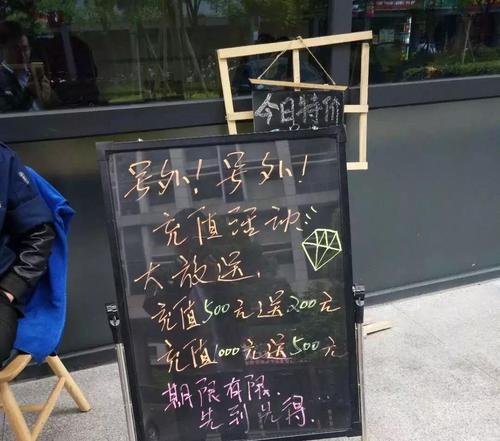 今日特价
号外!号外!
充值活动!!!
大放送,
充值500元送200元
充值1000元送500元
期限有限.
先到先得....